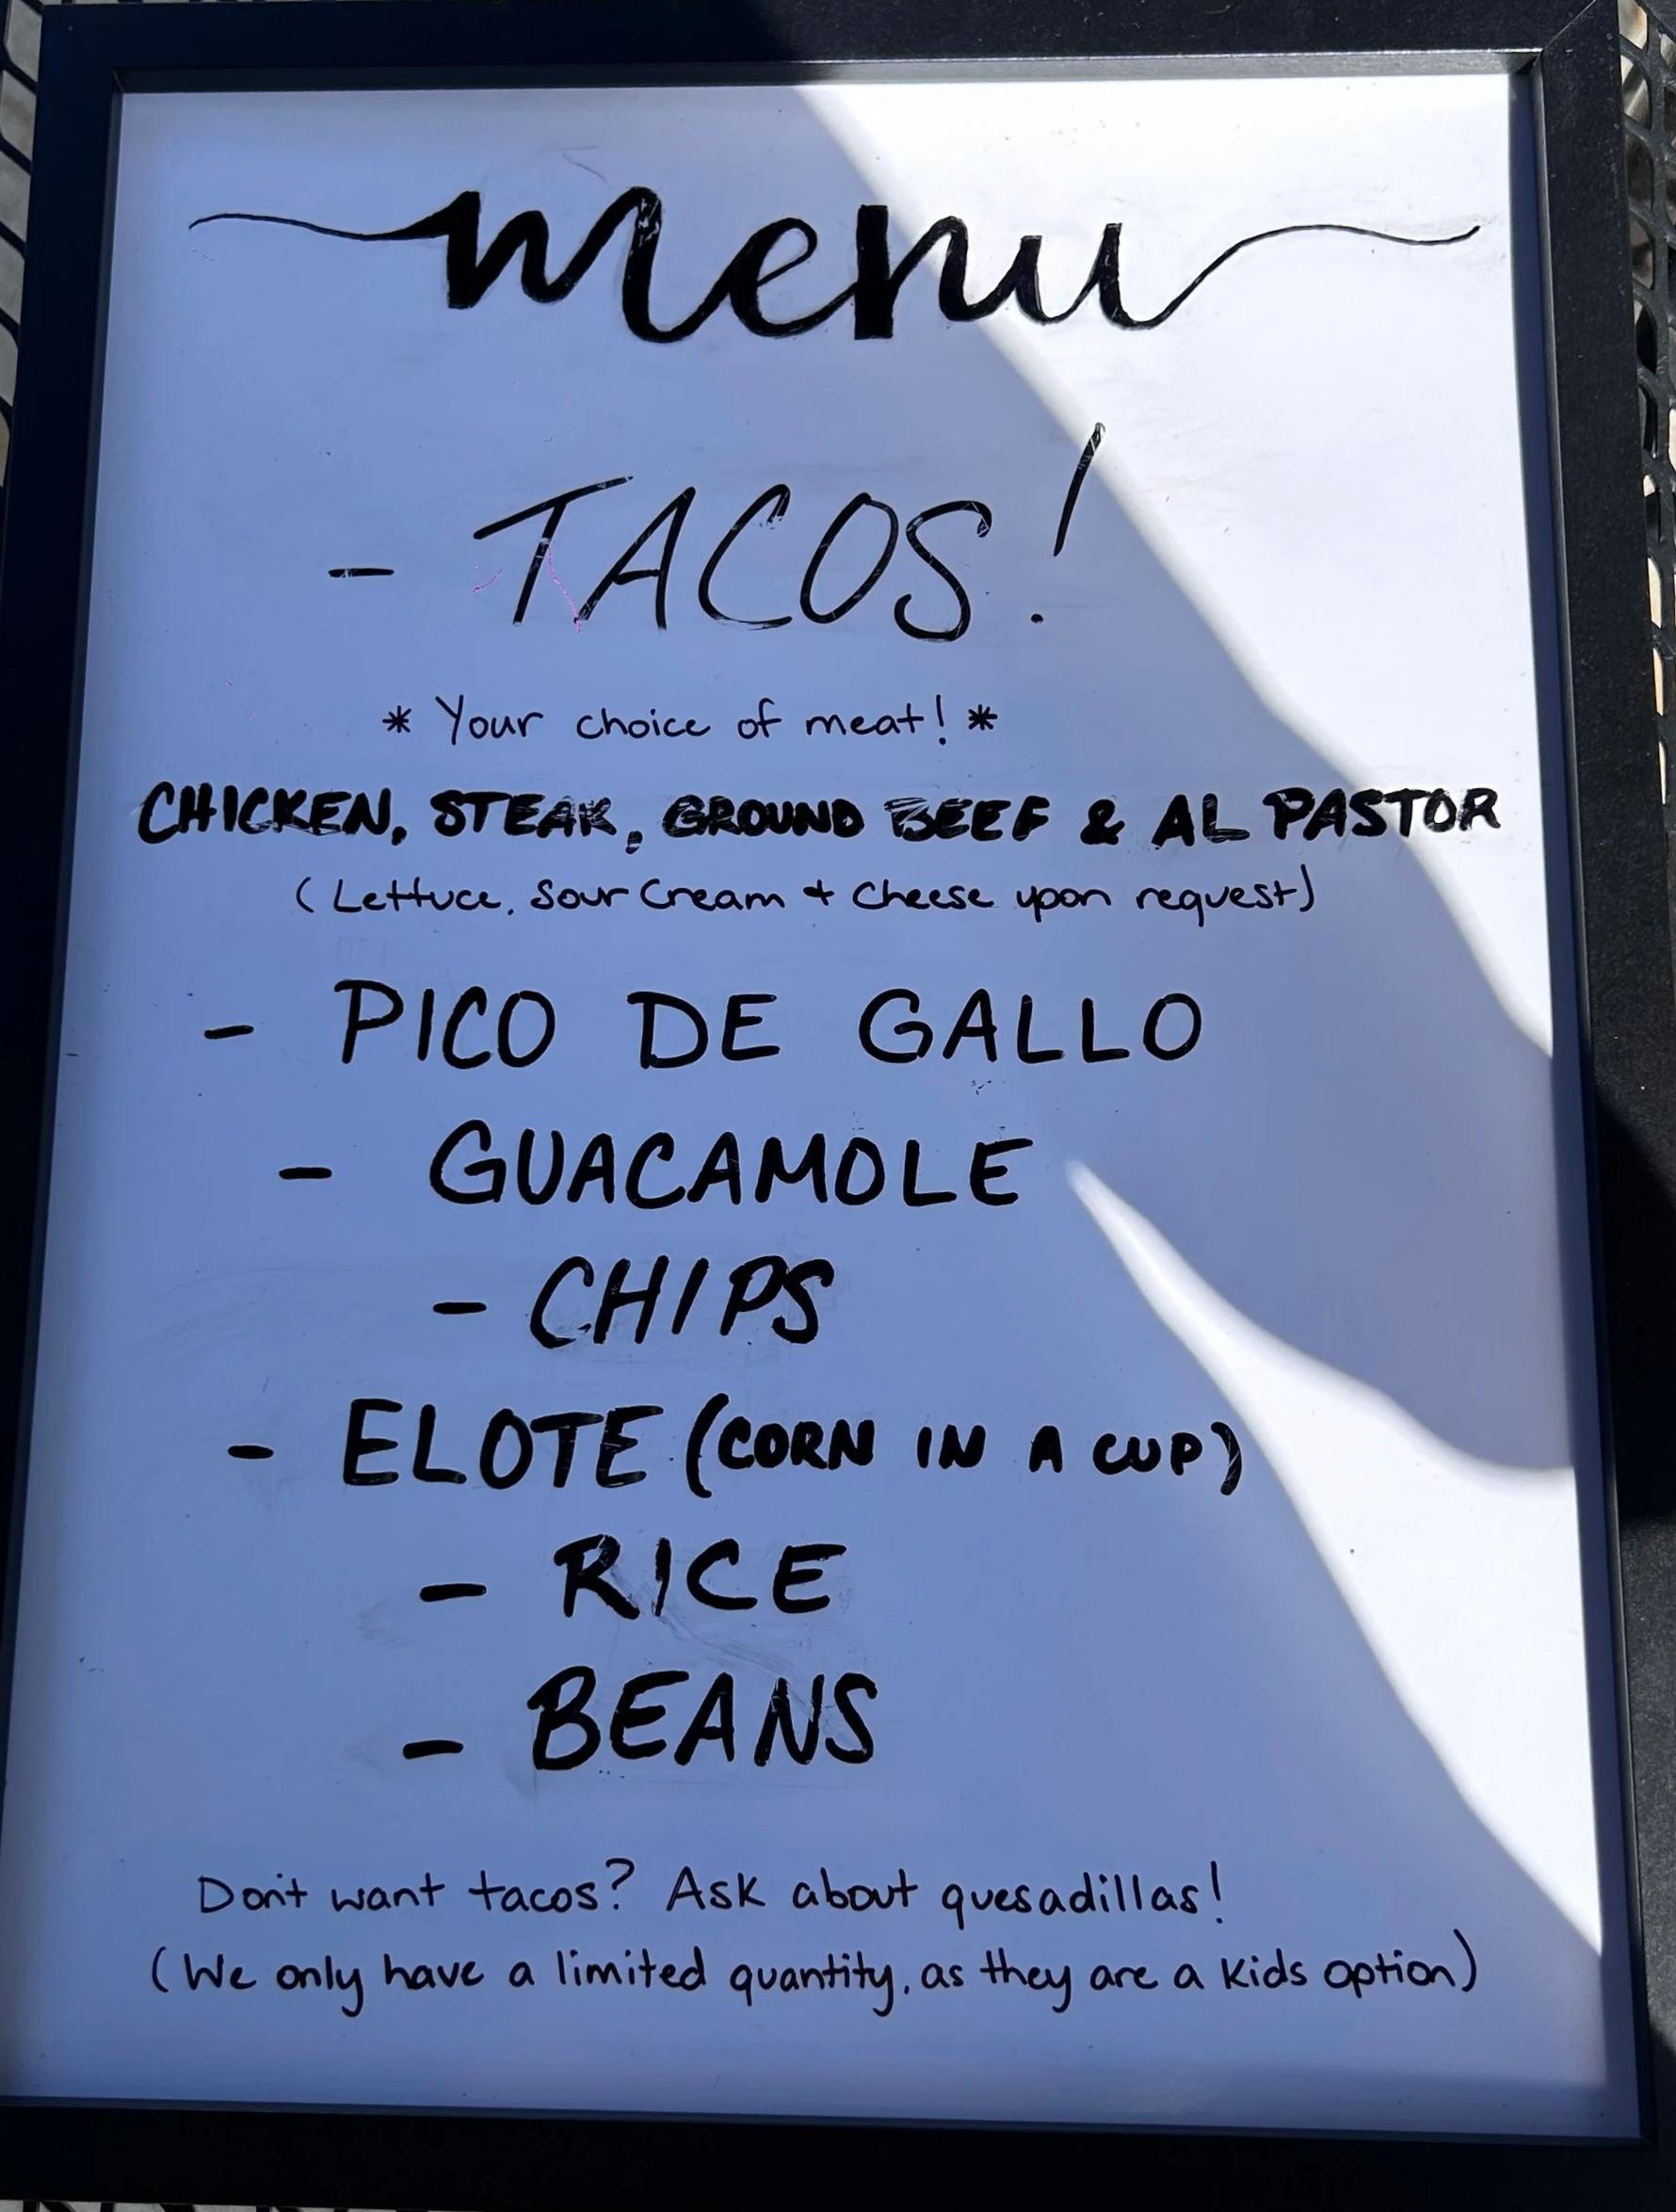 menu
- TACOS!
* Your choice of meat! *
CHICKEN, STEAK, GROUND BEEF & AL PASTOR
(Lettuce, Sour Cream + Cheese upon request)
- PICO DE GALLO
- GUACAMOLE
- CHIPS
- ELOTE (CORN IN A CUP)
- RICE
- BEANS
Don't want tacos? Ask about quesadillas!
(We only have a limited quantity, as they are a kids option)